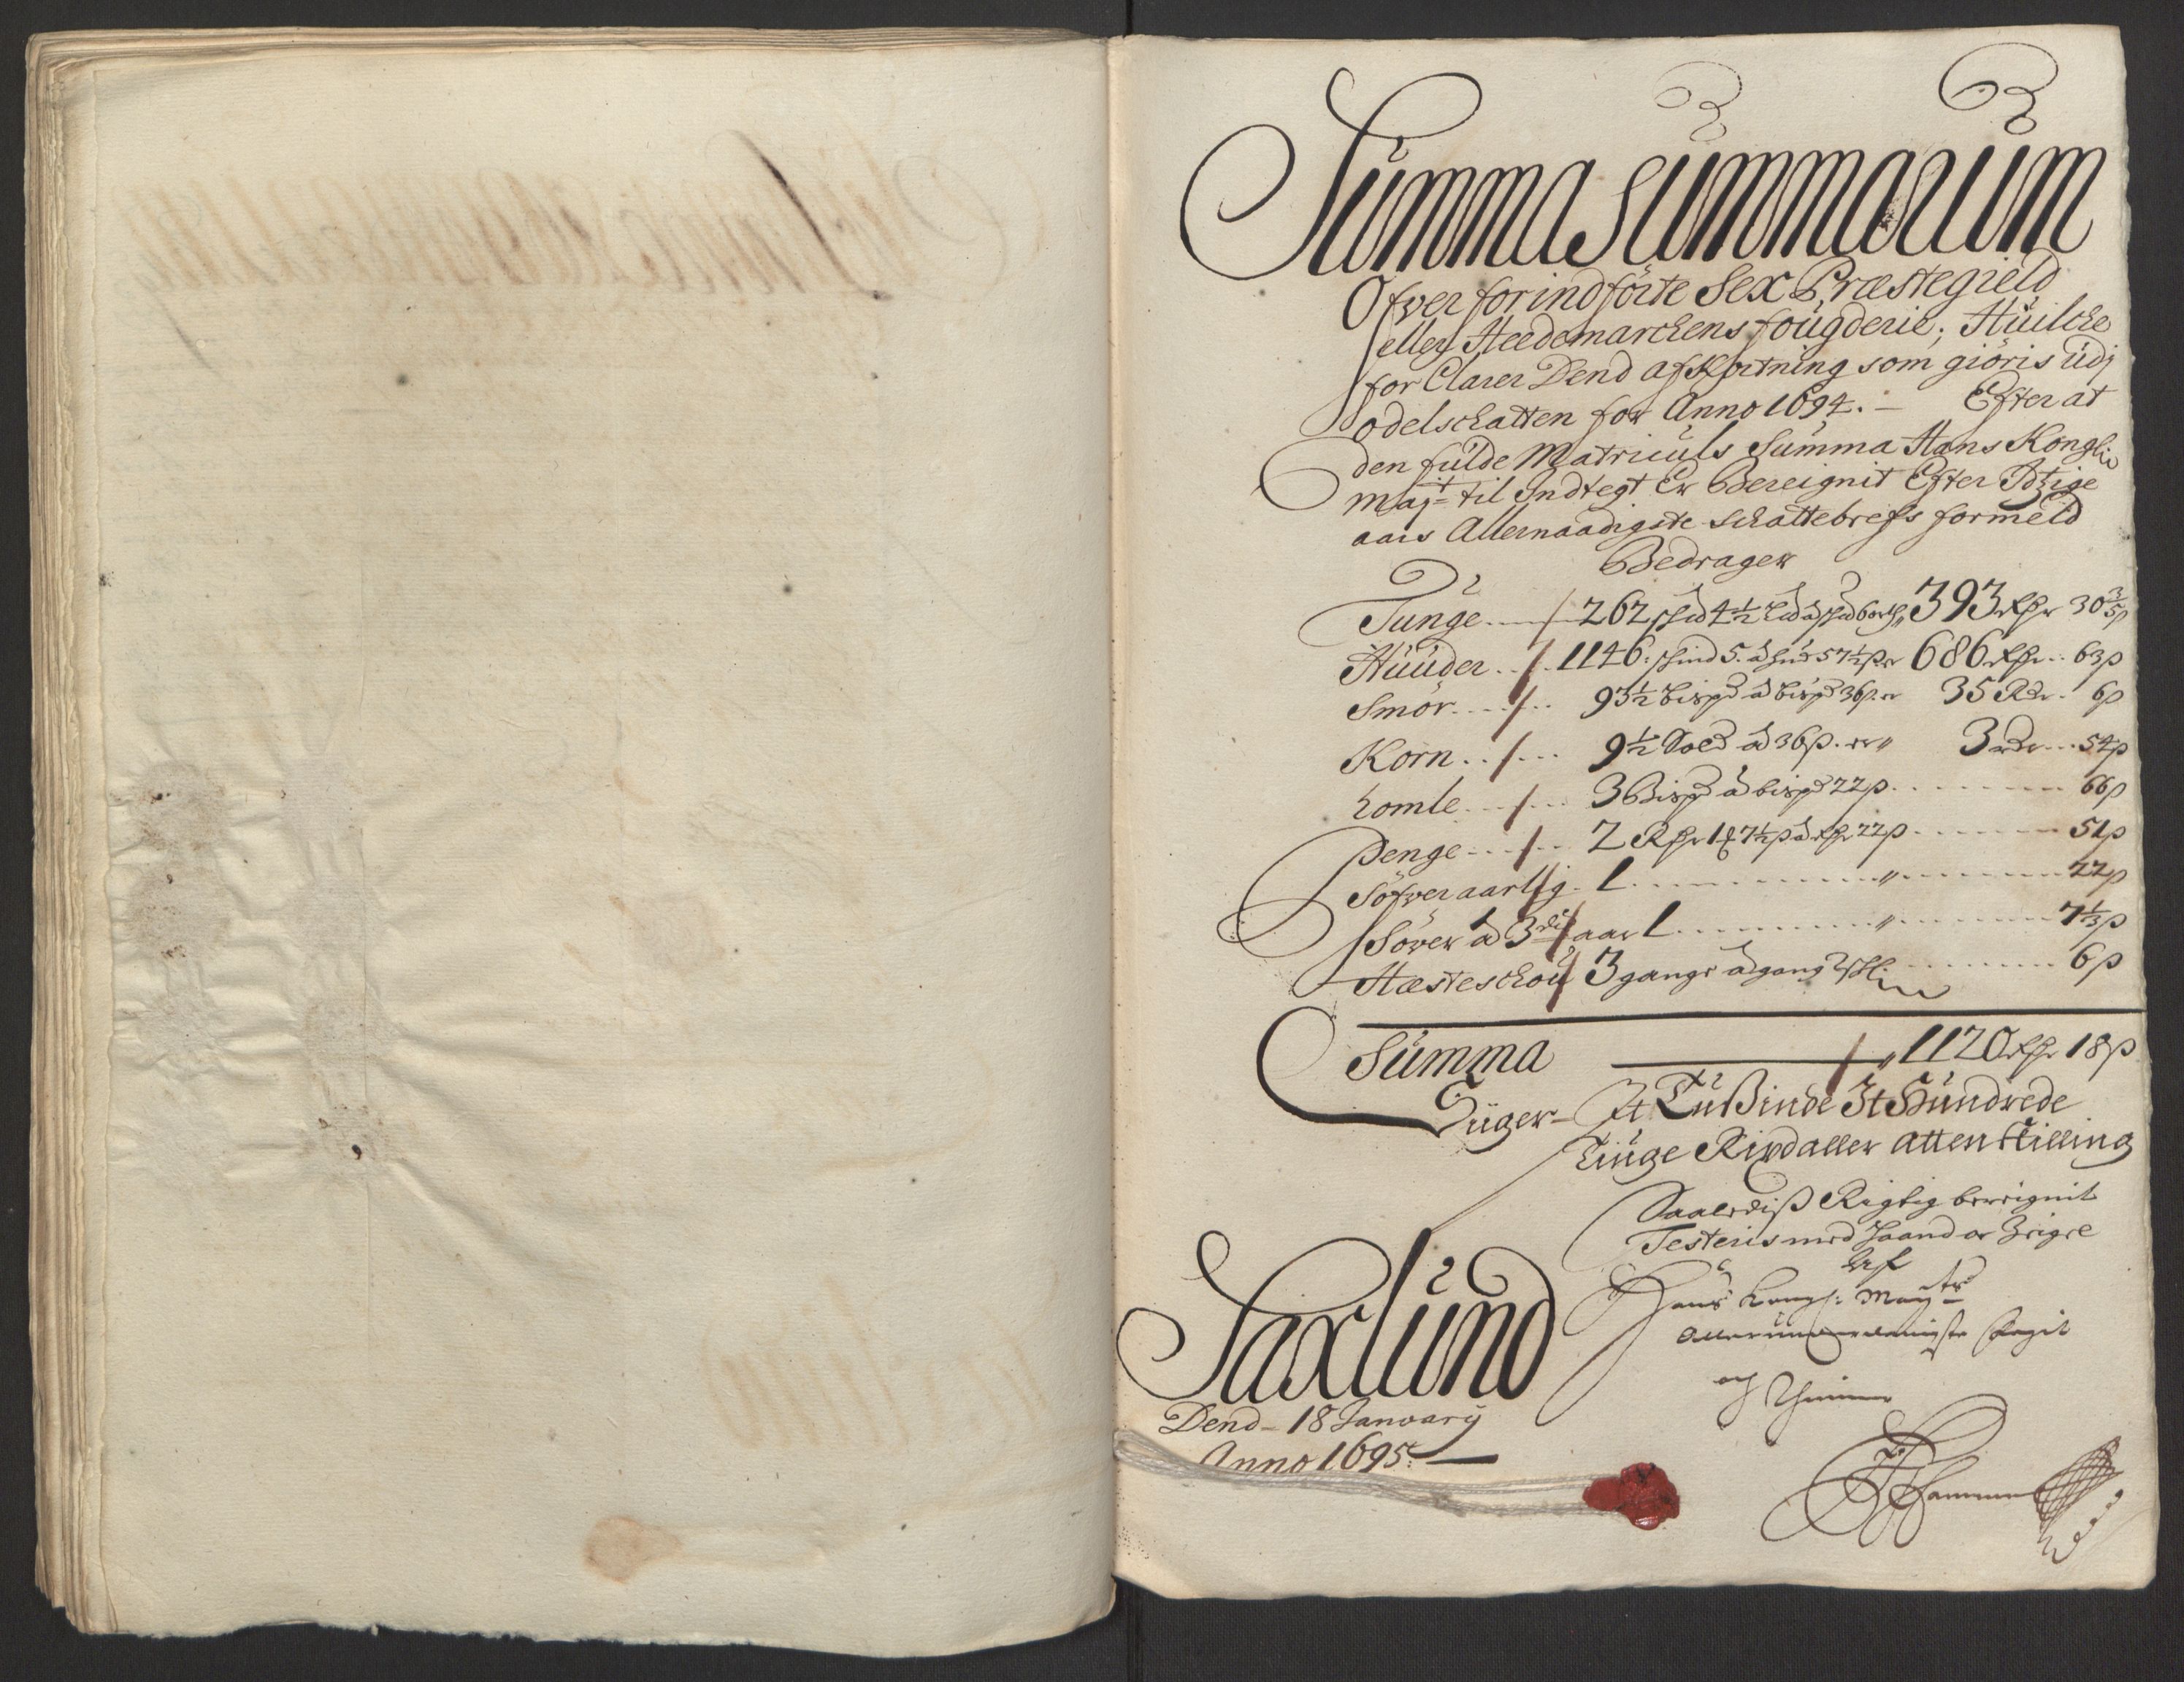 Summa Summarum
Ofver forindförte Sex Præstegield
eller Heedemarchens fougderie; Huilche
for Clarer Dend afkortning som giöris udj
odelschatten for Anno 1694. — Efter at
den fulde Matriculs Summa Hans Konglie
Majt til Indtegt er Bereignit Efter Itzige
aars Allernaadigste Schattebrefs formeld
Bedrager
Tunge 262 4½ 393 Rdr 30 3/5 ß
Huuder 1146 5 à hud 57½ ß er 686 Rdr 63 ß
Smör 93½ bispd à bispd 36 ß er 35 Rdr 6 ß
Korn 9½ Sold à 36 ß er 3 Rdr 54 ß
homle 3 Bispd à bispd 22 ß 66 ß
Penge 2 Rdr 1 7½ ß à Rdr 22 ß 51 ß
Söfver aarlig 1 22 ß
Söver à 3die aar 1 7⅓ ß
Hæsteschou 3 gange à gang 2 ß 6 ß
Summa 1120 Rdr 18 ß
Siger Et Tußinde Et Hundrede
tiuge Rixdaller Atten skilling
Saalediß Rigtig bereignit
Testeris med Haand oc Zeigne
Af
Hans Kongl: Mayts
Allerunderdanigste Pligt
og Thiener
Saxlund
Dend 18 January
Anno 1695